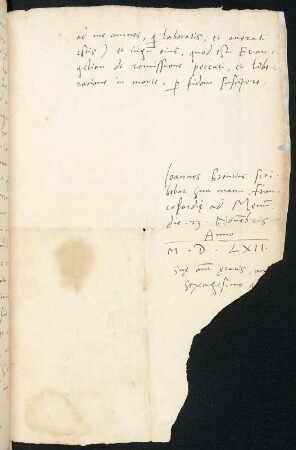 ad me omnes, q laboratis, et onerati
estis) et iugum eius, quod est Evan-
gelion de remissione peccati, et libe-
ratione in morte, p fidem suscipere.
Ioannes Brentius scri-
bebat sua manu Fran-
cofordiæ ad Menum
die 23 Novembris
Anno
M. D. LXII.
suę aut. ętatis, an
sexagesimo